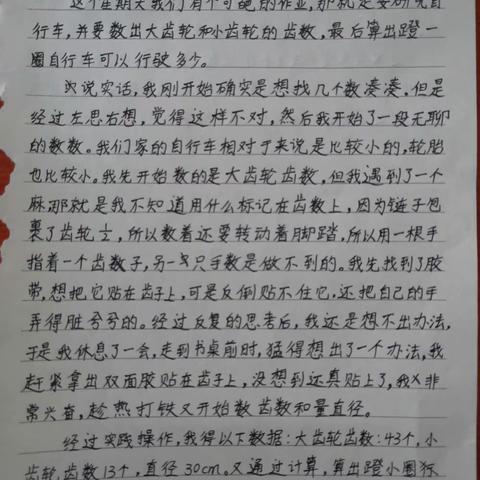 这个星期天我们有个可的作业,那就是要研究自
行车,并要数出大齿轮和小齿轮的齿数,最后算出蹬一
圈自行车可以行驶多少。
说实话,我刚开始确实是想找几个数凑凑。但是
经过左思右想,觉得这样不对,然后我开始了一段无聊
的数数。我们家的自行车相对于来说是比较小的,轮胎
也比较小。我先开始数的是大齿轮齿数,但我遇到了一个
麻那就是我不知道用什么标记在齿数上,因为链子包
裹了齿轮½,所以数着还要转动着用脚踏,所以用一根手
指着一个齿数子,另一只手数是做不到的。我先找到了胶
带,想把它贴在齿子上,可是反倒贴不住它,还把自己的手
弄得脏兮兮的。经过反复的思考后,我还是想不出办法,
于是我休息了一会,走到书桌前时,猛得想出了一个办法,我
赶紧拿出双面胶贴在齿子上,没想到还真贴上了,我非
常兴奋,趁热打铁又开始数齿数和量直径。
经过实践操作,我得以下数据:大齿轮齿数:43个,小
齿轮齿数13个,直径30cm。又通过计算,算出蹬小圈